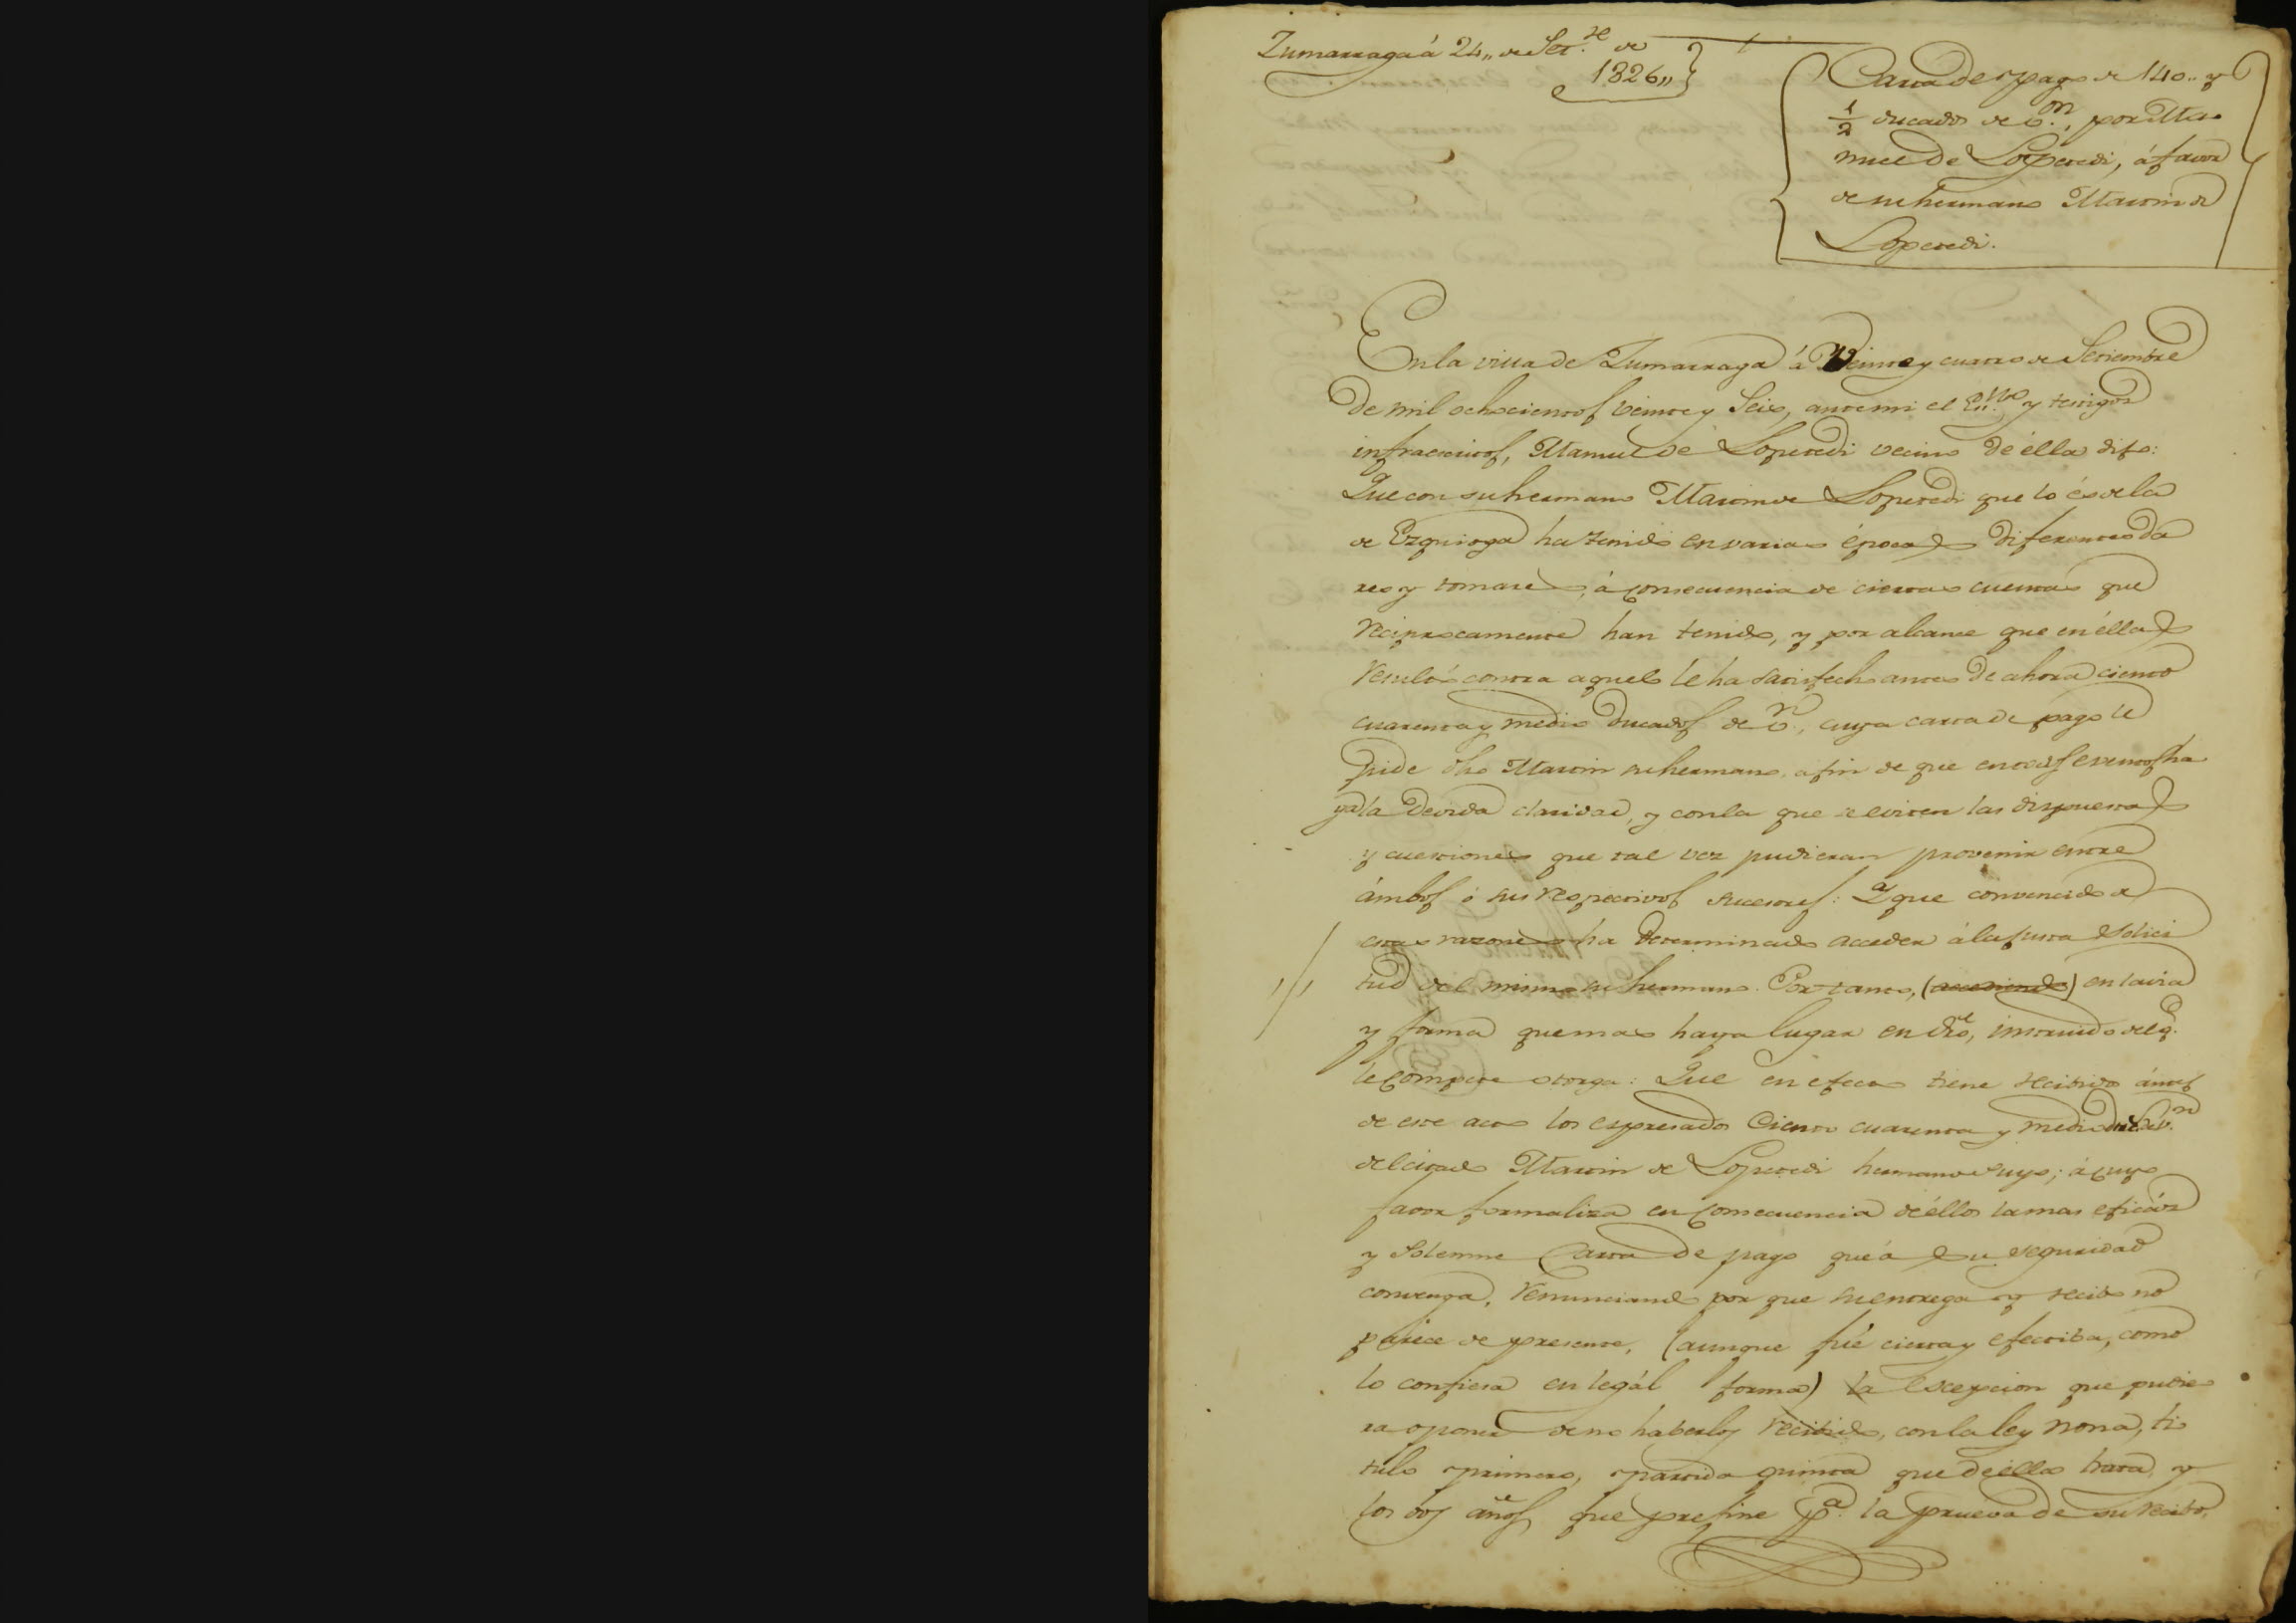 Zumarraga á 24,, de Set.re de
1826,,
Carta de pago de 140,, y
1/2 ducados de v.on, por Ma-
nuel de Loperedi, á favor
de su hermano Martin de
Loperedi.
En la villa de Zumarraga á Veinte y cuatro de Setiembre
de mil ochocientos veinte y Seis, ante mi el Es.no y testigos
infraescritos, Manuel de Loperedi vecino de élla dijo:
Que con su hermano Martin de Loperedi que lo és de la
de Ezquioga ha tenido en varias épocas diferentes da
res y tomares, á consecuencia de ciertas cuentas que
reciprocamente han tenido, y por alcance que en éllas
resultó contra aquel le ha satisfecho antes de ahora ciento
cuarenta y medio Ducados de v.n, cuya carta de pago le
pide dho Martin su hermano, afin de que en todos eventos ha
ya la devida claridad, y con la que se eviten las dispuestas
y cuestiones que tal vez pudieran provenir entre
ámbos ó sus respectivos sucesores: Y que convencido de
estas razones ha determinado acceder á la justa solici
tud del mismo su hermano. Por tanto, (accediendo) en la via
y forma que mas haya lugar en dro, instruido del q.e
le compete otorga: Que en efecto tiene recibido ántes
de este acto los espresados Ciento cuarenta y medio duc.s v.n
del citado Martin de Loperedi hermano suyo; á cuyo
favor formaliza en consecuencia de éllos la mas eficáz
y solemne Carta de pago que á su seguridad
convenga, renunciando por que su entrega y recibo no
parece de presente, (aunque fué cierta y efectiba, como
lo confiesa en legál forma) la escepcion que pudie
ra oponer de no haberlos recibido, con la ley nona, ti
tulo primero, partida quinta que de élla trata, y
los dos años que prefine p.a la prueva de su recibo,